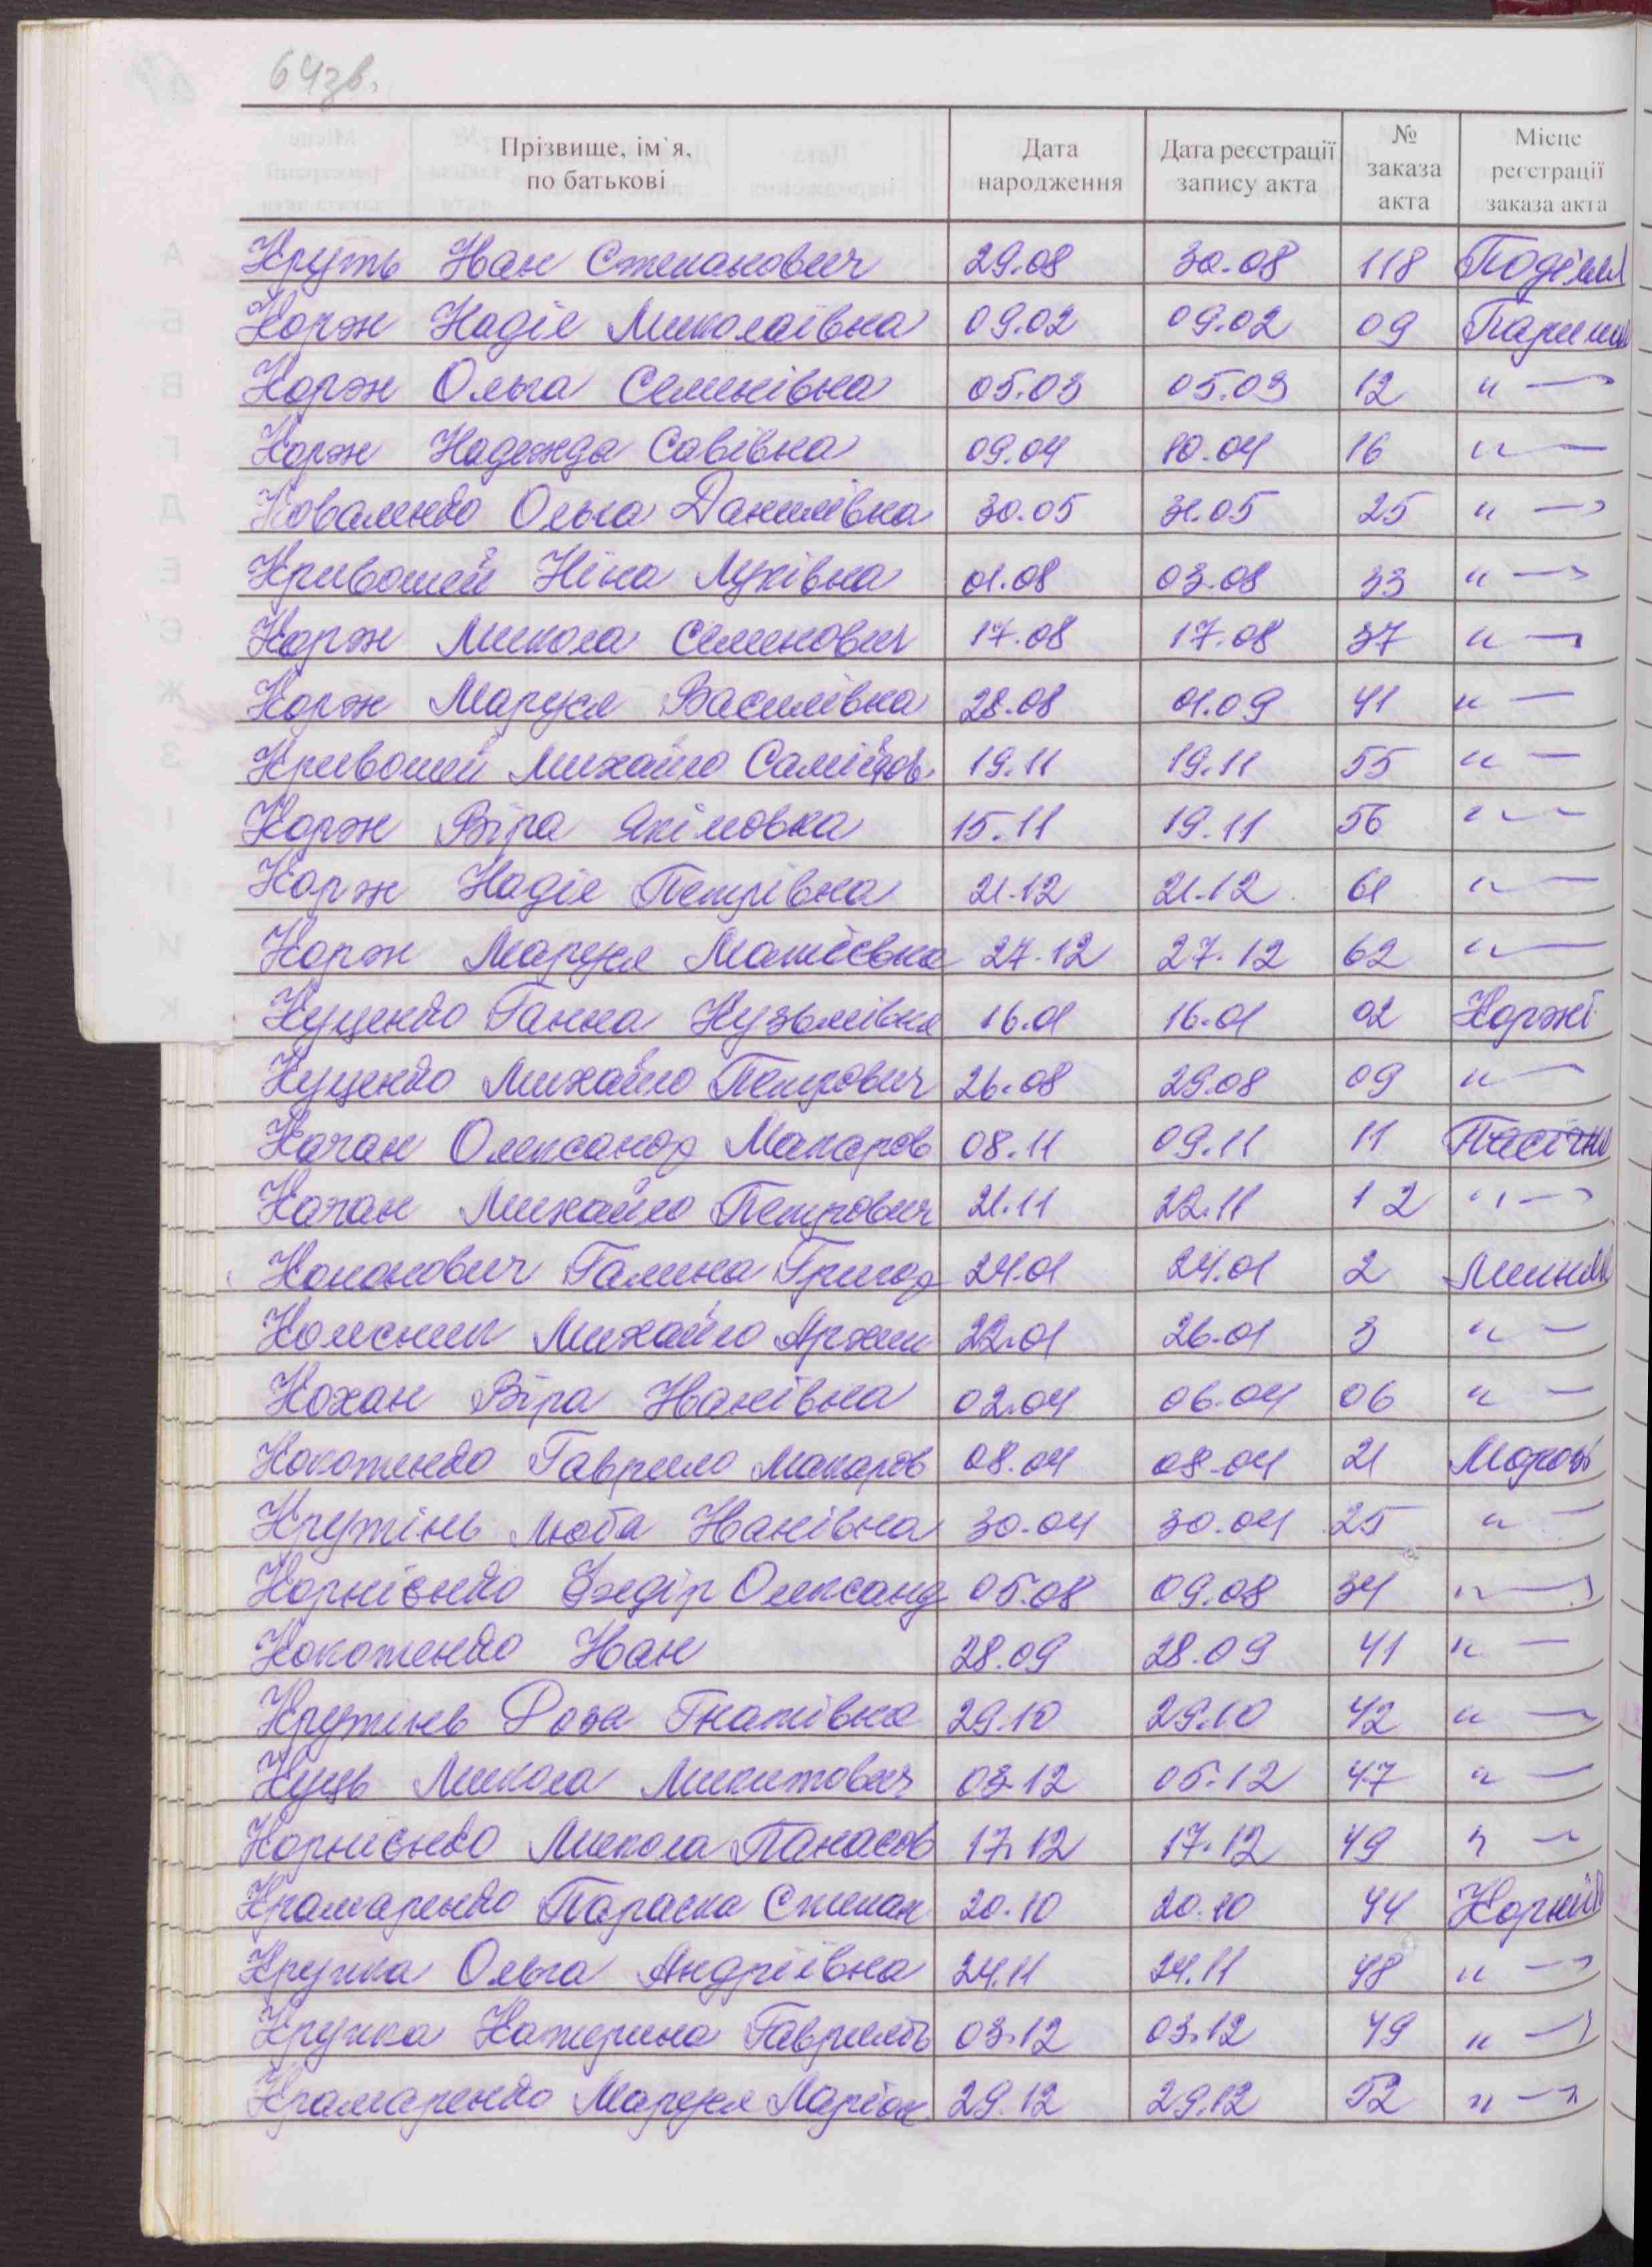 64зв.
Прізвище, ім`я, по батькові Дата народження Дата реєстрації запису акта № заказа акта Місце реєстрації заказа акта
Круть Іван Степанович 29.08 30.08 118
Корж Надія Миколаївна 09.02 09.02 09
Корж Ольга Семенівна 05.03 05.03 12 "—
Корж Надежда Савівна 09.04 10.04 16 "—
Коваленко Ольга Данилівна 30.05 31.05 25 "—
Кривошей Ніна Луківна 01.08 03.08 33 "—
Корж Микола Семенович 17.08 17.08 37 "—
Корж Маруся Василівна 28.08 01.09 41 "—
Кривошей Михайло 19.11 19.11 55 "—
Корж Віра Якімовна 15.11 19.11 56 "—
Корж Надія Петрівна 21.12 21.12 61 "—
Корж Маруся Матієвна 27.12 27.12 62 "—
Куценко Ганна Кузьмівна 16.01 16.01 02 Коржі
Куценко Михайло Петрович 26.08 29.08 09 "—
Качан Олександр Макаров 08.11 09.11 11 Пасічн
Качан Михайло Петрович 21.11 22.11 12 "—
Кононович Галина Григор 24.01 24.01 2
Колесник Михайло Архип 22.01 26.01 3 "—
Кохан Віра Іванівна 02.04 06.04 06 "—
Кокотенко Гаврило Макаров 08.04 08.04 21
Крутінь Люба Іванівна 30.04 30.04 25 "—
Корнієнко Федір Олександ 05.08 09.08 34 "—
Кокотенко Іван 28.09 28.09 41 "—
Крутінь Роза Гнатівна 29.10 29.10 42 "—
Куць Микола Микитович 03.12 05.12 47 "—
Корнієнко Микола Панасов 17.12 17.12 49 "—
Крамаренко Параска Степан 20.10 20.10 44
Кручка Ольга Андріївна 24.11 24.11 48 "—
Кручка Катерина 03.12 03.12 49 "—
Крамаренко Маруся Ларіон 29.12 29.12 52 "—